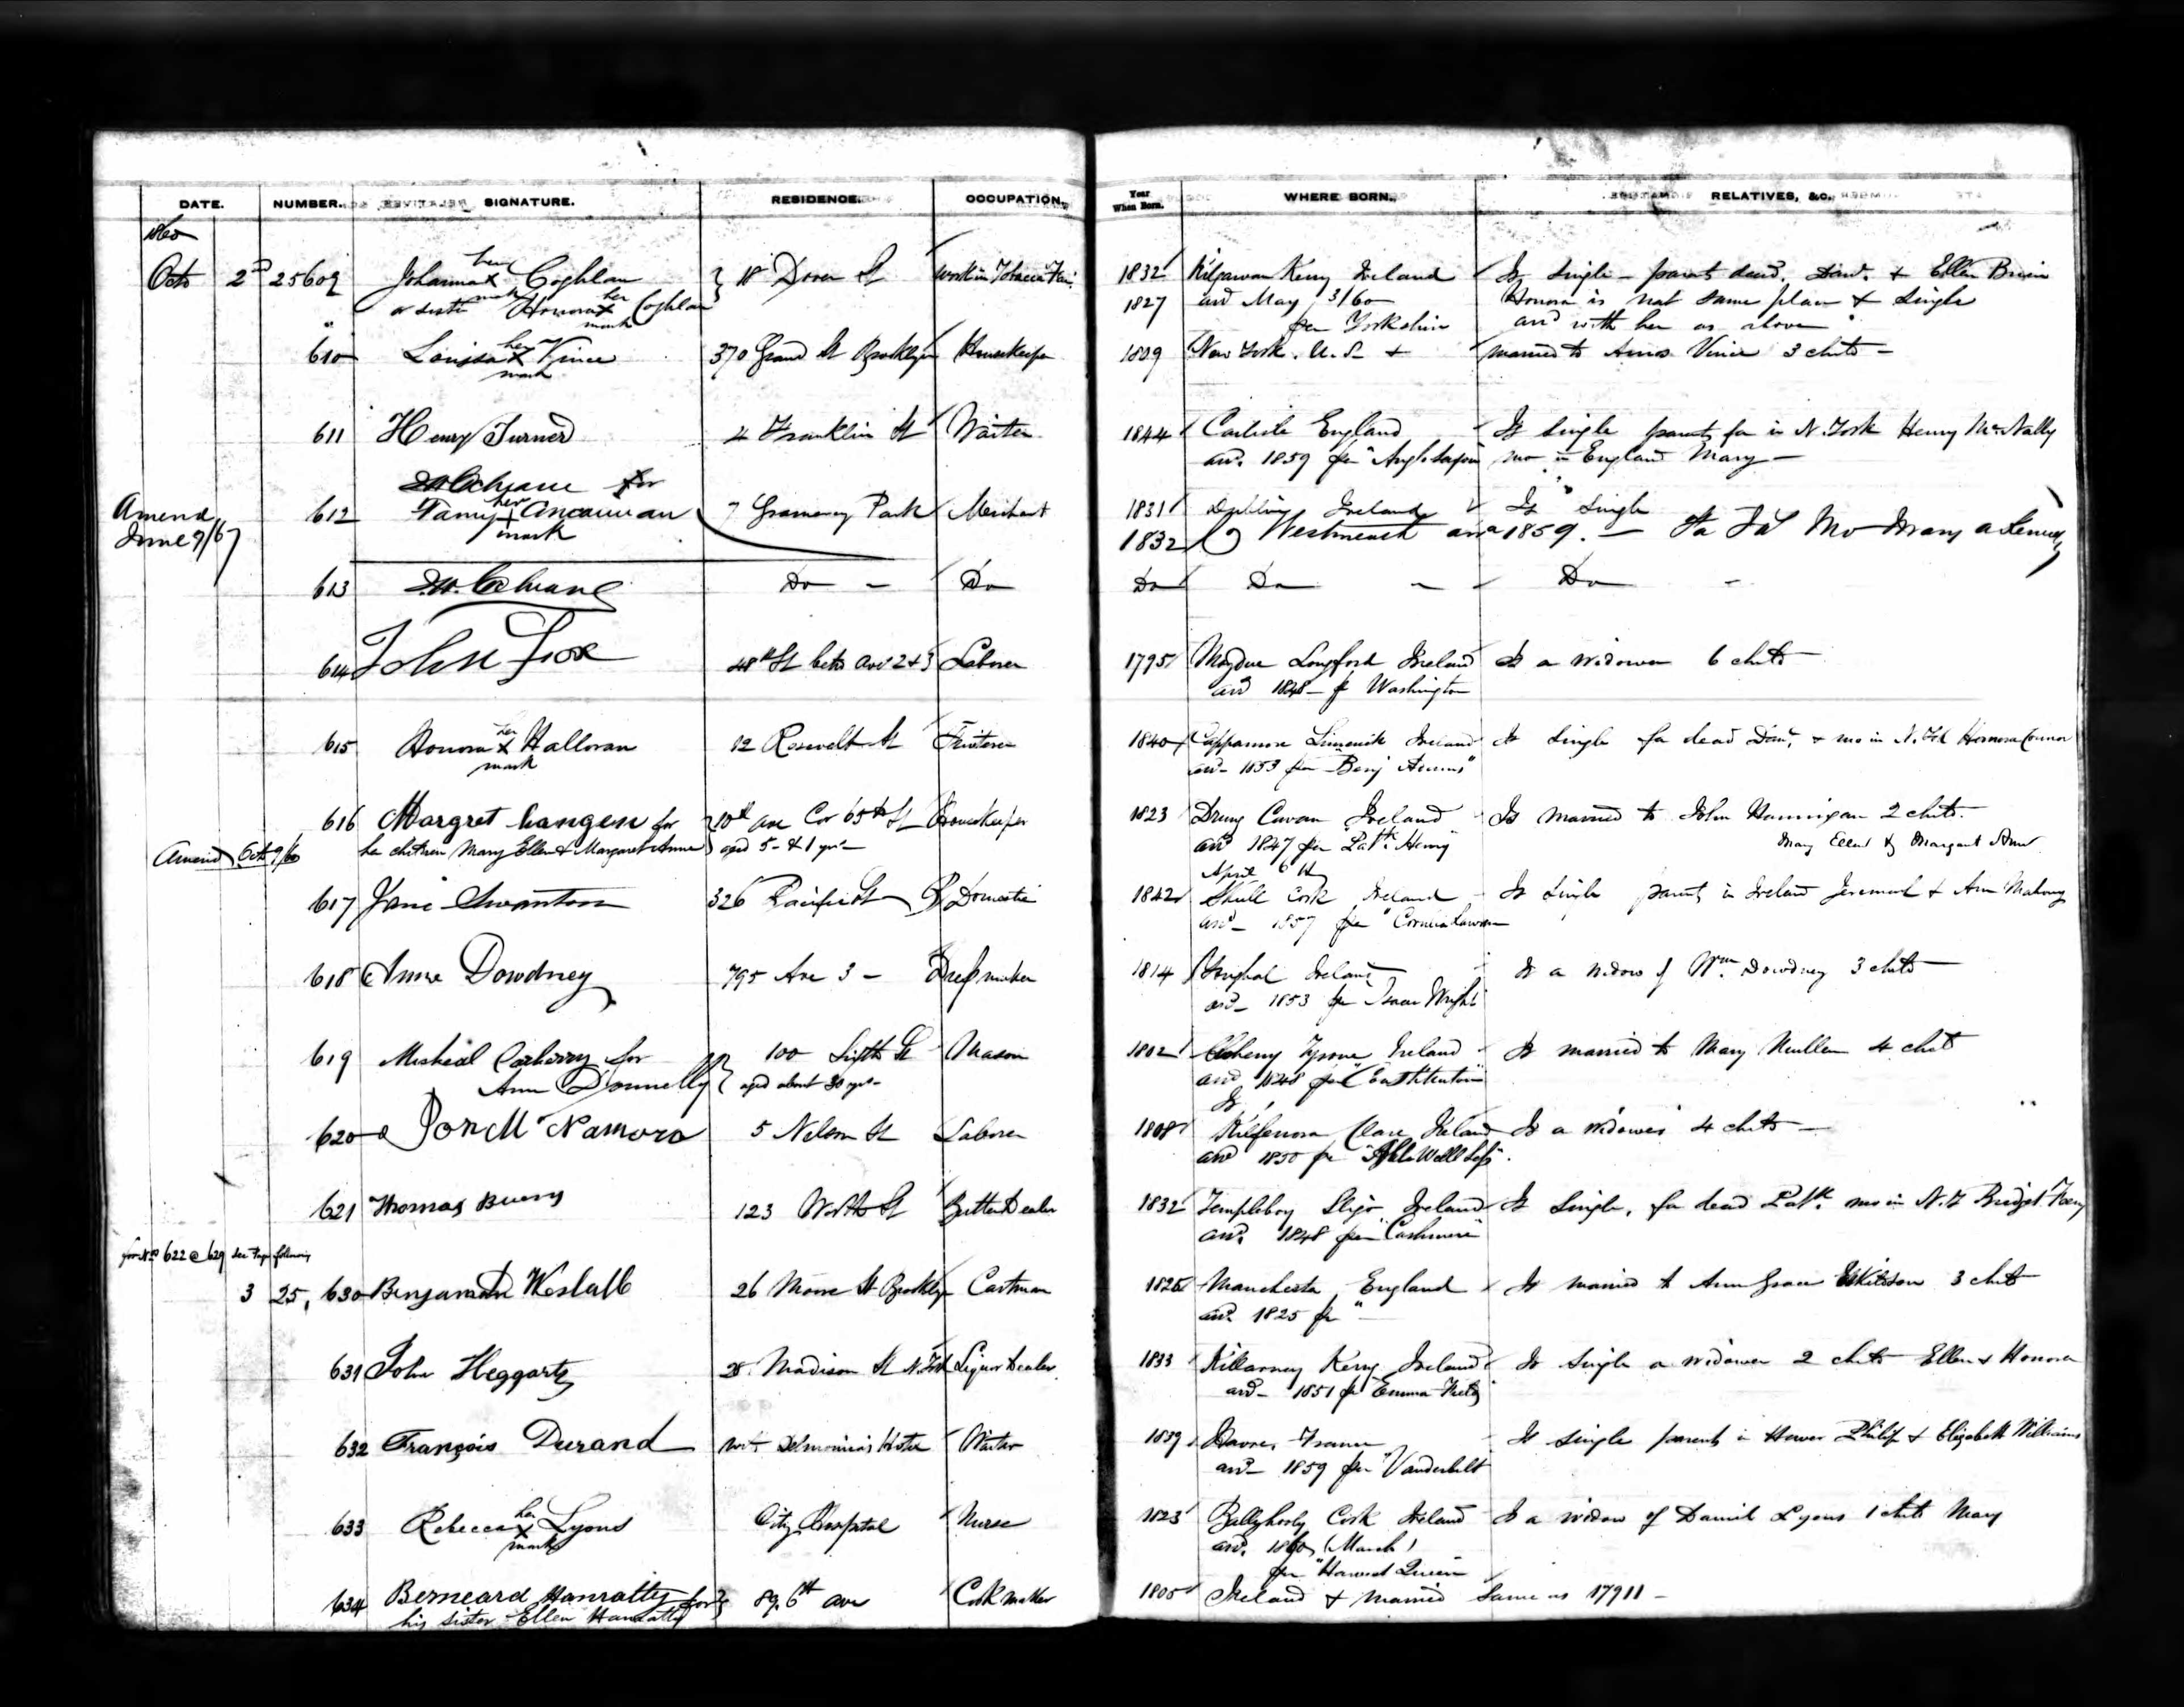 DATE. NUMBER. SIGNATURE. RESIDENCE. OCCUPATION. Year When Born. WHERE BORN. RELATIVES, &c.
1860
Octo 2nd 25609 Johanna her X mark Coghlan 18 Dover St 1832 Kerry Ireland Is single - parents dead, & Ellen
or sister Honora her X mark Coghlan 1827 arrd May 3/60 Honora is nat same place & single
per Yorkshire and with her as above
610 Louisa her X mark Vince 370 Grand St Brooklyn Housekeeper 1809 New York. U.S. + married to Amos Vince 3 chds -
611 Henry Turner 4 Franklin St Waiter 1844 Carlisle England Is single parents fa in N. York Henry McNally
arrd. 1859 per "Anglo Saxon mo in England Mary -
Cochrane for
Amend June 9/67 612 her + mark 7 Gramercy Park Merchant 1831 Dublin Ireland Is single
1832 Westmeath arrd 1859. - Fa Mo
613 Cochrane Do - Do Do Do - Do -
614 John Fox 48th St betn Aves 2 & 3 Laborer 1795 Moydue Longford Ireland Is a widower 6 chds
arrd 1848 - pr Washington
615 Honora her X mark Halloran 12 Rosevelt St 1840 Cappamore Limerick Ireland Is single fa dead Danl. & mo in N. Yk Honora Connor
arrd - 1853 per "Benj Adams"
616 Margret for 10th ave Cor 65th St Housekeeper 1823 Drung Cavan Ireland Is married to John Hannigan 2 chds.
Amend Oct 9/60 her children Mary Ellen & Margaret Anne aged 5 - & 1 yrs - arrd 1847 per "Patk. Henry" Mary Ellen & Margaret Ann
April 6th
617 Jane Swanton 326 Pacific St B Domestic 1842 Skull Cork Ireland Is single parents in Ireland Jeremiah & Ann Mahony
arrd - 1857 per "Cornelia Lawrence
618 Anne Dowdney 795 Ave 3 - Dressmaker 1814 Youghal Ireland Is a widow of Wm. Dowdney 3 chds
arrd - 1853 per Isaac Wright
619 Micheal Carberry for 100 Fifth St Mason 1802 Tyrone Ireland Is married to Mary Mullen 4 chds
Ann Donnelly aged about 30 yrs - arrd 1848 per "Constitution"
620 McNamara 5 Nelson St Laborer 1808 Kilfenora Clare Ireland Is a widower 4 chds -
arrd 1850 pr
621 Thomas Buery 123 Worth St Butter Dealer 1832 Templeboy Sligo Ireland Is single, fa dead Patk. mo in N.Y Bridget
arrd. 1848 per "Cashmere"
for Nos 622 @ 629 see Page following
3 25, 630 Benjamin Westall 26 Moore St Brooklyn Cartman 1825 Manchester England Is married to Ann Grace 3 chds
arrd. 1825 pr "-
631 John Heggarty 28. Madison St N. York Liquor Dealer 1833 Killarney Kerry Ireland Is single a widower 2 chds Ellen & Honora
arrd - 1851 pr "Emma
632 François Durand Delmonico's Hotel Waiter 1839 Havre, France Is single parents in Havre Philip & Elizabeth Williams
arrd - 1859 per "Vanderbilt
633 Rebecca her X mark Lyons City Hospital Nurse 1823 Ballyhooly Cork Ireland Is a widow of Daniel Lyons 1 chd Mary
arrd. 1860 (March)
per "Harvest Queen"
634 Berneard Hanratty for 89. 6th ave Cork maker 1805 Ireland & married Same as 17911 -
his sister Ellen Hanratty